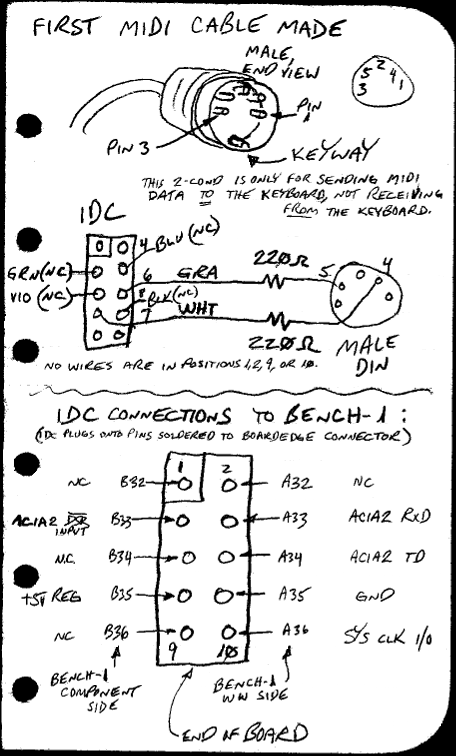 FIRST MIDI CABLE MADE
MALE,
END VIEW
5 2 4 1
3
PIN 3
PIN
1
KEYWAY
THIS 2-COND IS ONLY FOR SENDING MIDI
DATA TO THE KEYBOARD, NOT RECEIVING
FROM THE KEYBOARD.
IDC
4 BLU (NC)
GRN (NC)
6 GRA 220Ω 5 4
VIO (NC)
8 BLK (NC)
7 WHT
220Ω MALE
DIN
NO WIRES ARE IN POSITIONS 1, 2, 9, OR 10.
IDC CONNECTIONS TO BENCH-1 :
(IDC PLUGS ONTO PINS SOLDERED TO BOARDEDGE CONNECTOR)
1 2
NC B32 A32 NC
ACIA2 DSR B33 A33 ACIA2 RXD
INPUT
N.C. B34 A34 ACIA2 TD
+5V REG B35 A35 GND
NC B36 A36 SYS CLK I/O
9 10
BENCH-1
COMPONENT
SIDE
BENCH-1
WW SIDE
END OF BOARD